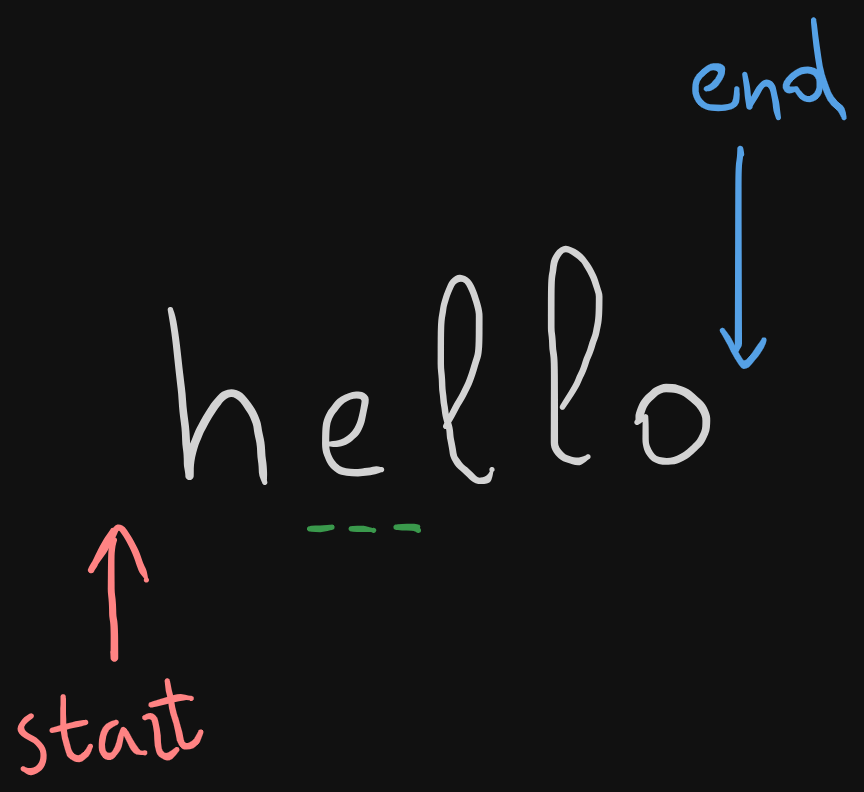 end
hello
start